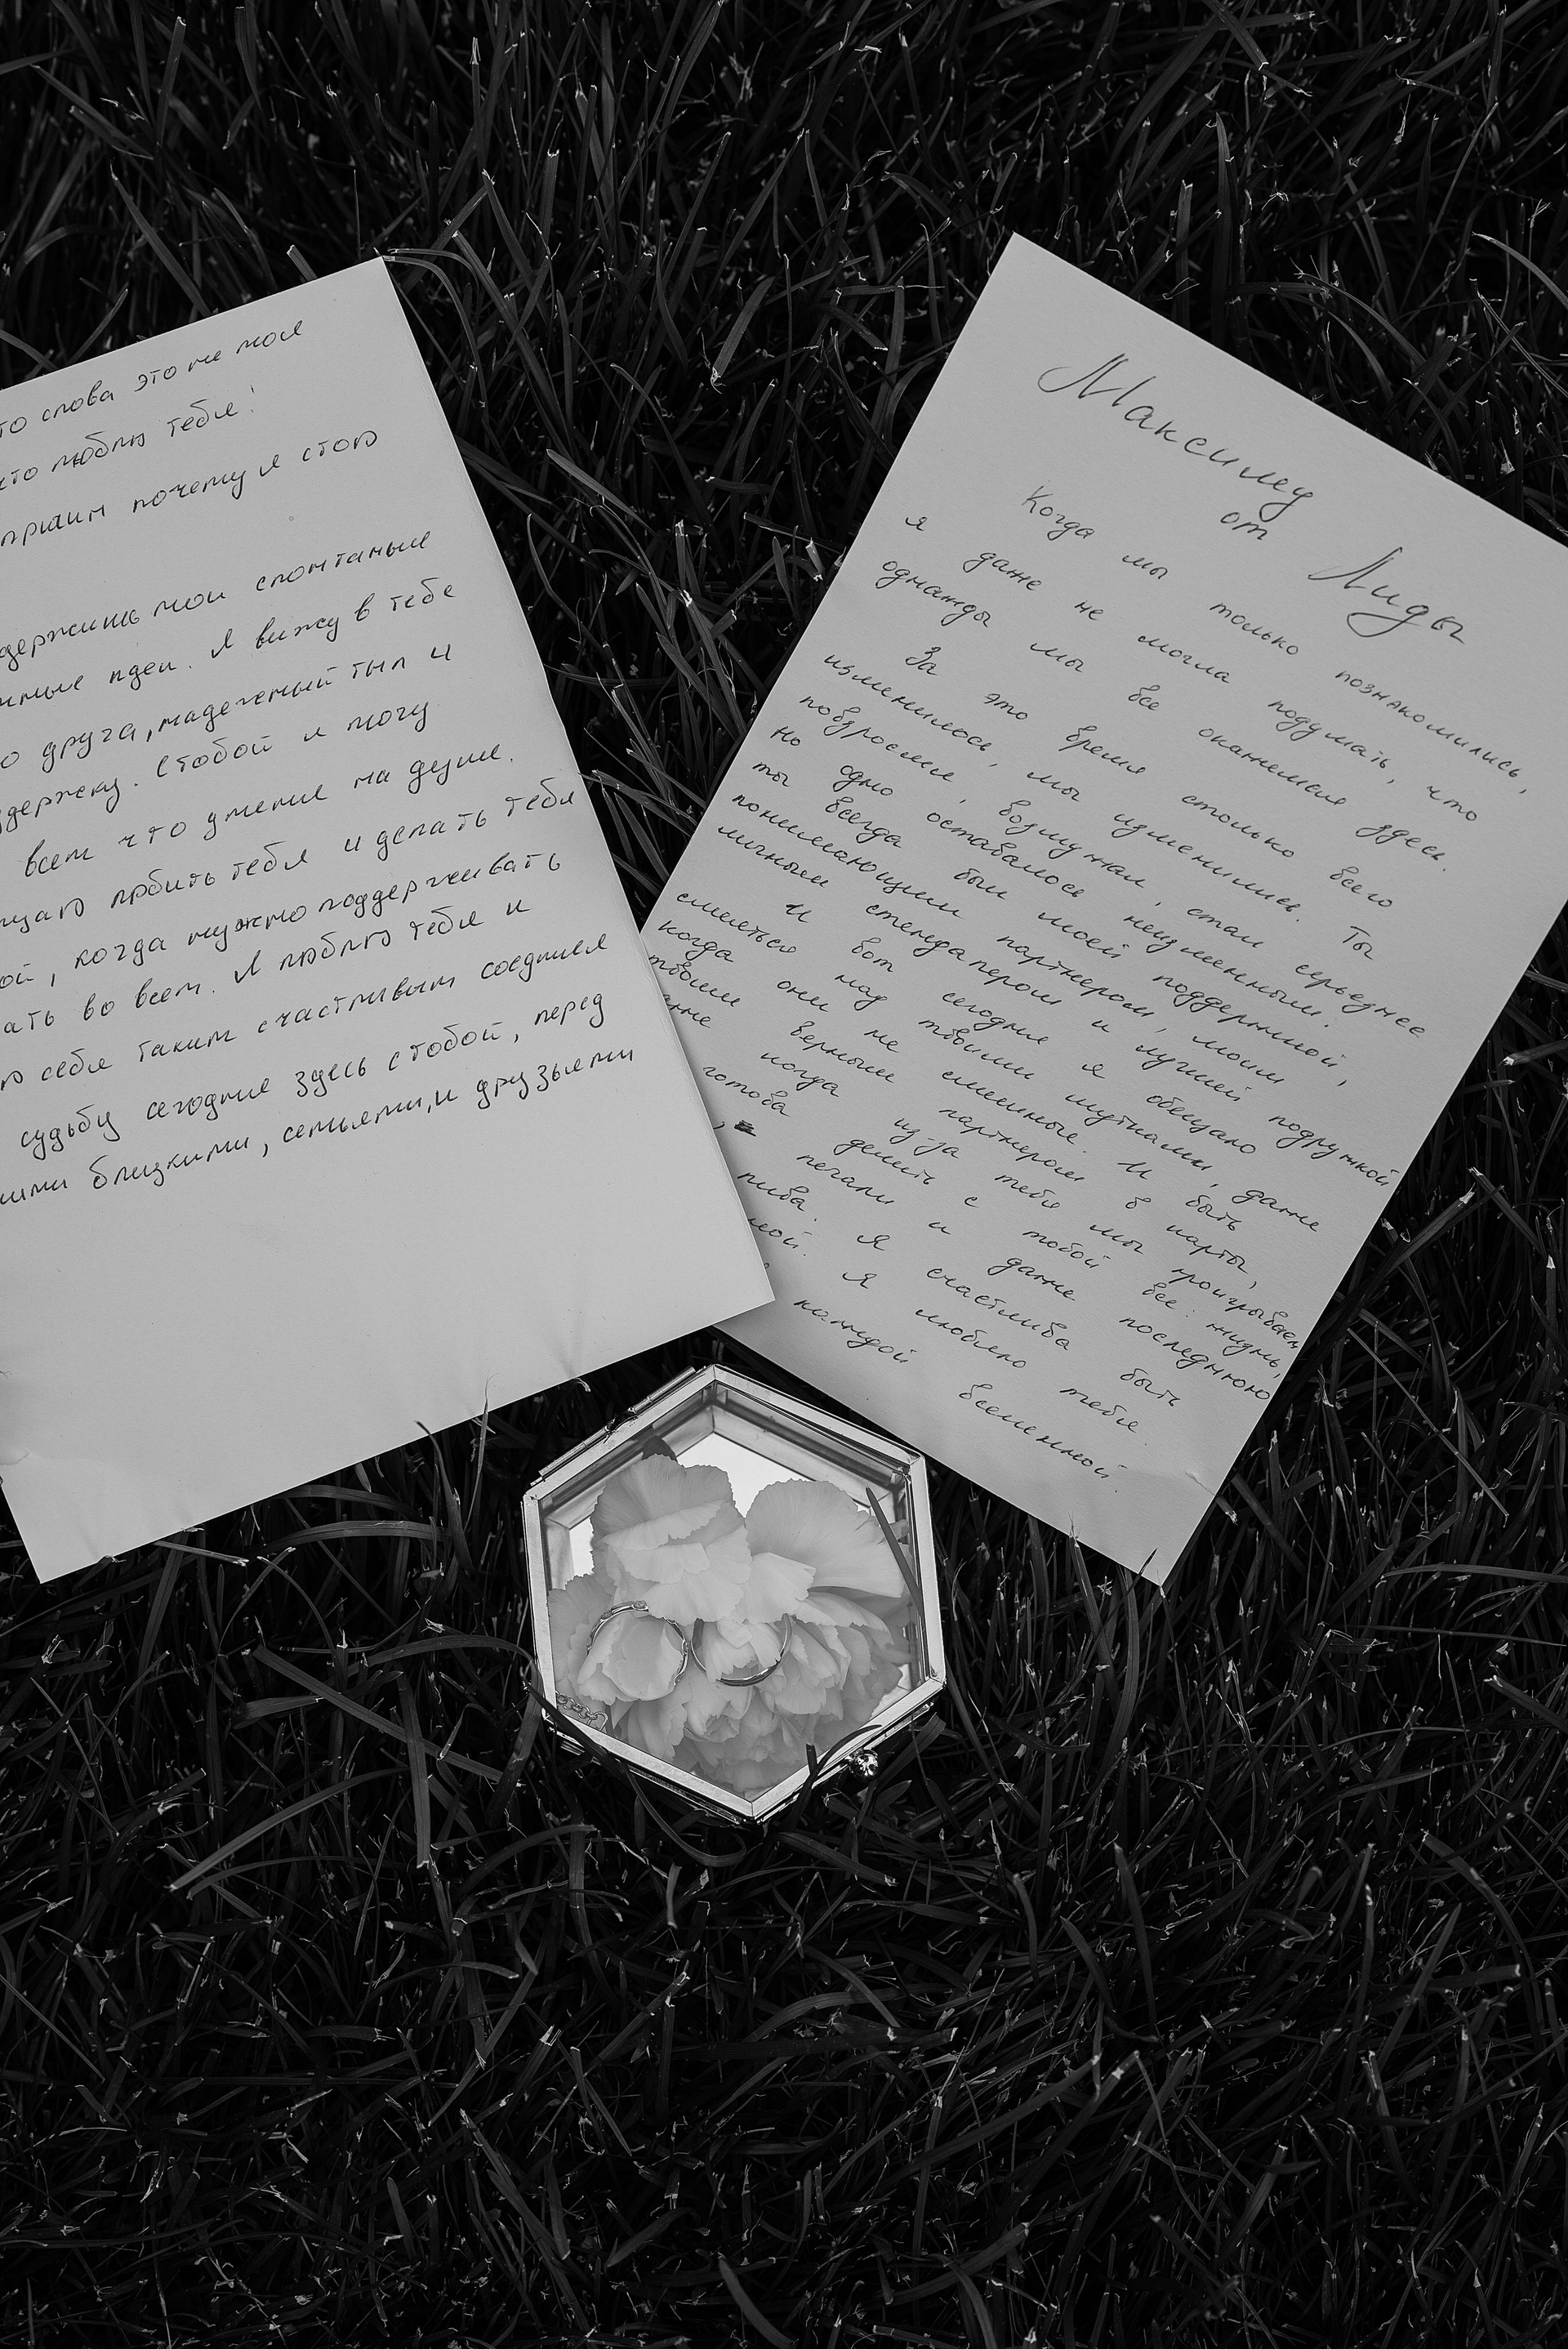 то слова это не мое
что люблю тебя!
почему я стою
мои спонтаные
идеи. Я вижу в тебе
друга, надежный тыл и
Стобой я могу
всем что у меня на душе.
любить тебя и делать тебя
ой, когда нужно поддерживать
ать во всем. Я люблю тебя и
ю себя таким счастливым соединяя
судьбу сегодня здесь с тобой, перед
ими близкими, семьями, и друзьями
Максиму
от Лиды
Когда мы только познакомились,
я даже не могла подумать, что
однажды мы все окажемся здесь.
За это время столько всего
изменилось, мы изменились. Ты
повзрослел, возмужал, стал серьезнее
Но одно оставалось неизменным.
ты всегда был моей поддержкой,
понимающим партнером, моим
личным стендапером и лучшей подружкой
И вот сегодня я обещаю
смеяться над твоими шутками, даже
когда они не смешные. И быть
твоим верным партнером в карты,
аже когда из-за тебя мы проигрываем
готова делить с тобой все: жизнь,
, печали и даже последнюю
пива. Я счастлива быть
мой. Я люблю тебя.
каждой вселенной